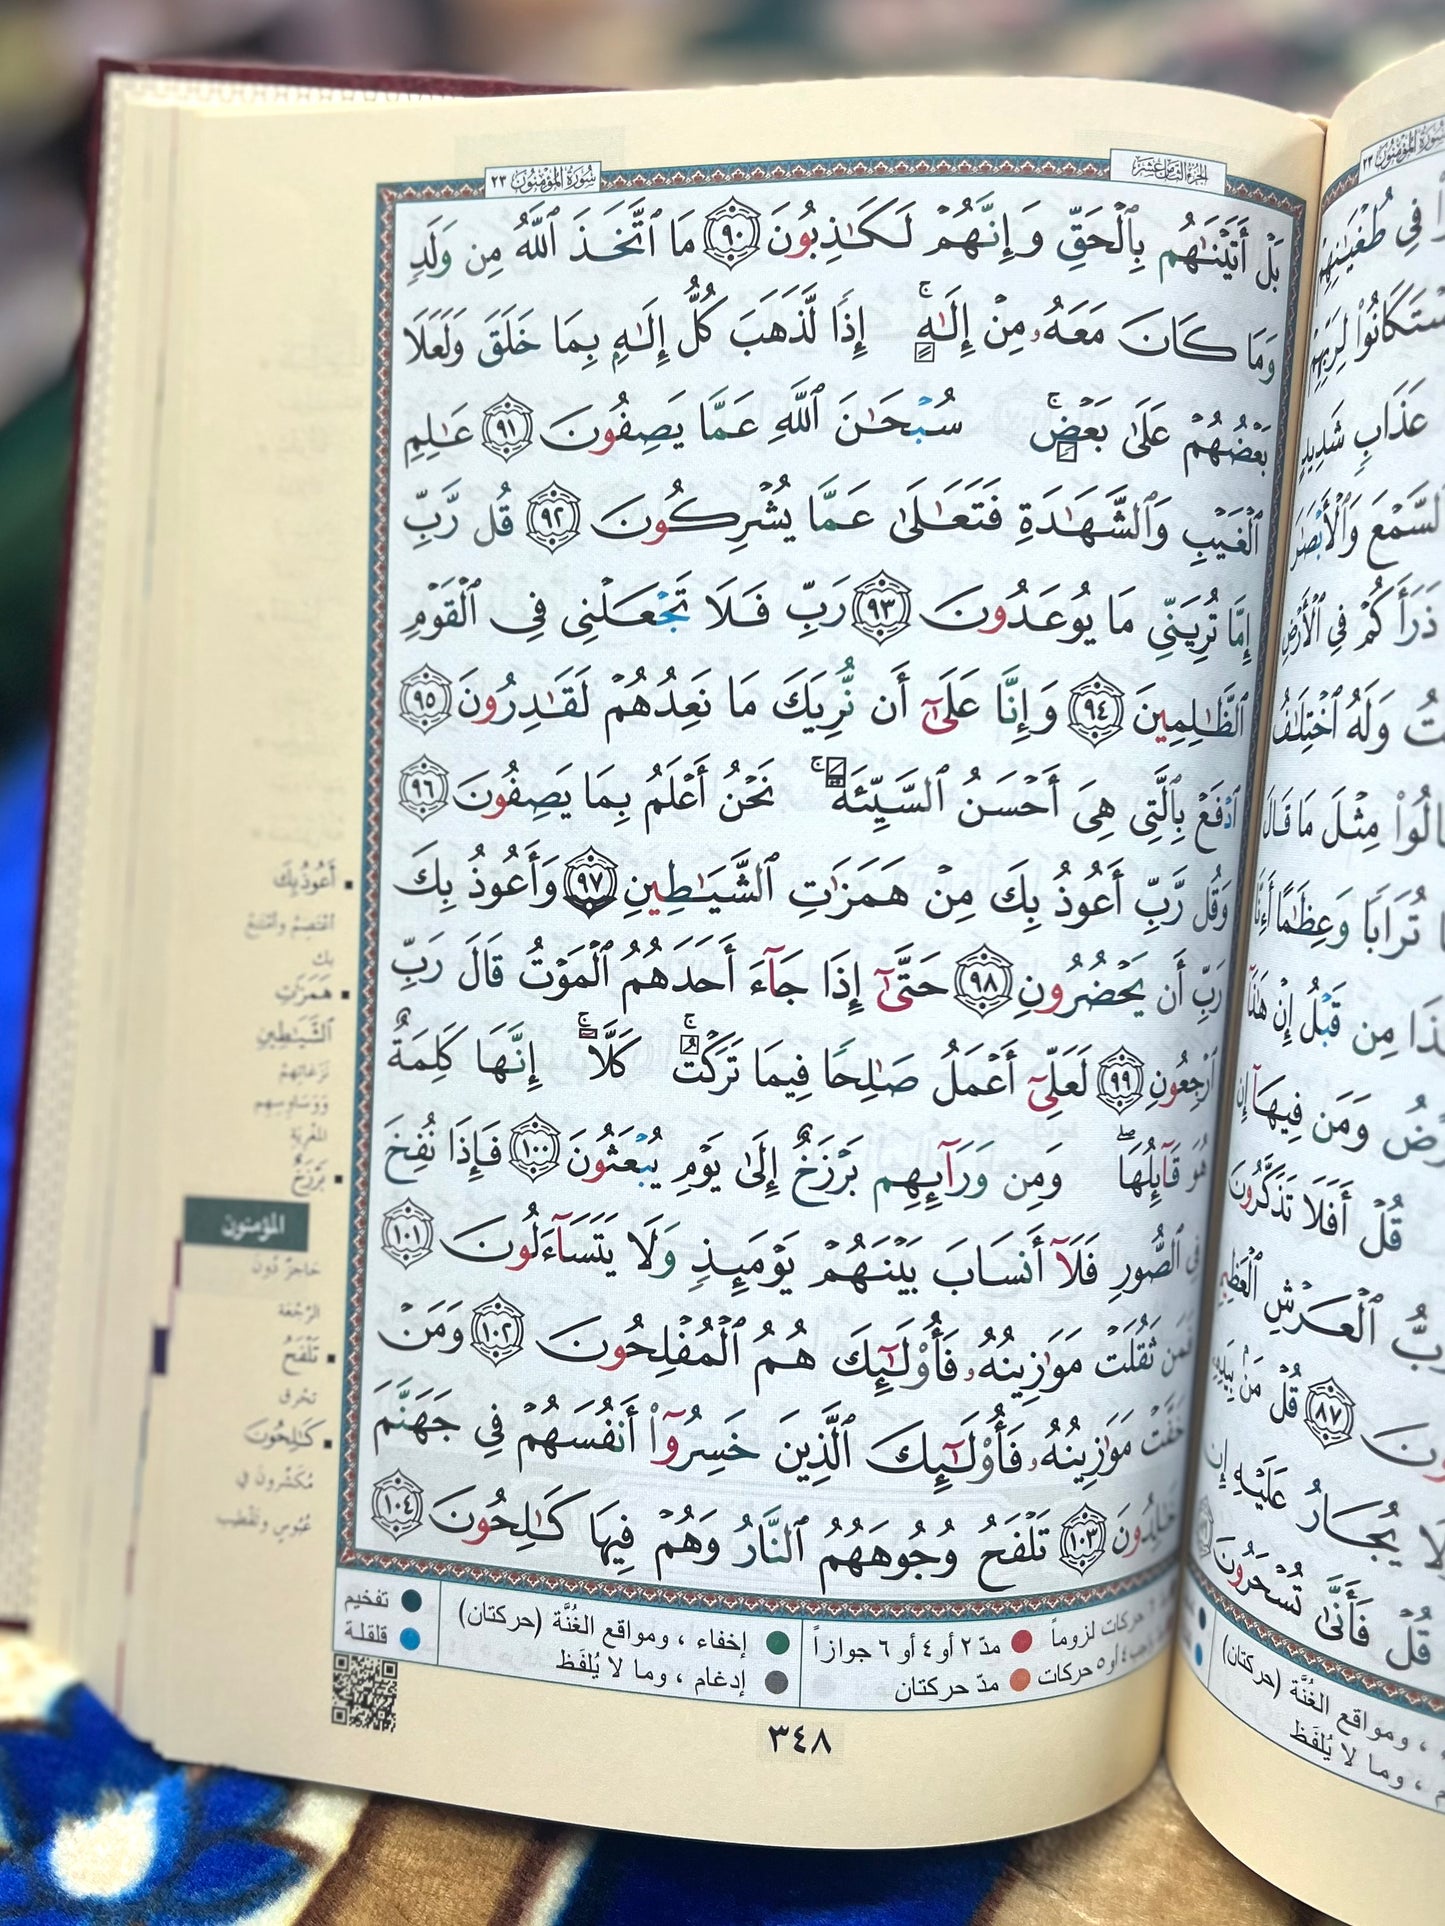 سُورَةُ المُؤْمِنُون ٢٣
الجُزْءُ الثَّامِنَ عَشَرَ
بَلْ أَتَيْنَٰهُم بِٱلْحَقِّ وَإِنَّهُمْ لَكَٰذِبُونَ ٩٠ مَا ٱتَّخَذَ ٱللَّهُ مِن وَلَدٍ
وَمَا كَانَ مَعَهُۥ مِنْ إِلَٰهٍ ۚ إِذًا لَّذَهَبَ كُلُّ إِلَٰهٍ بِمَا خَلَقَ وَلَعَلَا
بَعْضُهُمْ عَلَىٰ بَعْضٍ ۚ سُبْحَٰنَ ٱللَّهِ عَمَّا يَصِفُونَ ٩١ عَٰلِمِ
ٱلْغَيْبِ وَٱلشَّهَٰدَةِ فَتَعَٰلَىٰ عَمَّا يُشْرِكُونَ ٩٢ قُل رَّبِّ
إِمَّا تُرِيَنِّى مَا يُوعَدُونَ ٩٣ رَبِّ فَلَا تَجْعَلْنِى فِى ٱلْقَوْمِ
ٱلظَّٰلِمِينَ ٩٤ وَإِنَّا عَلَىٰٓ أَن نُّرِيَكَ مَا نَعِدُهُمْ لَقَٰدِرُونَ ٩٥
ٱدْفَعْ بِٱلَّتِى هِىَ أَحْسَنُ ٱلسَّيِّئَةَ ۚ نَحْنُ أَعْلَمُ بِمَا يَصِفُونَ ٩٦
وَقُل رَّبِّ أَعُوذُ بِكَ مِنْ هَمَزَٰتِ ٱلشَّيَٰطِينِ ٩٧ وَأَعُوذُ بِكَ
رَبِّ أَن يَحْضُرُونِ ٩٨ حَتَّىٰٓ إِذَا جَآءَ أَحَدَهُمُ ٱلْمَوْتُ قَالَ رَبِّ
ٱرْجِعُونِ ٩٩ لَعَلِّىٓ أَعْمَلُ صَٰلِحًا فِيمَا تَرَكْتُ ۚ كَلَّآ ۚ إِنَّهَا كَلِمَةٌ
هُوَ قَآئِلُهَا ۖ وَمِن وَرَآئِهِم بَرْزَخٌ إِلَىٰ يَوْمِ يُبْعَثُونَ ١٠٠ فَإِذَا نُفِخَ
فِى ٱلصُّورِ فَلَآ أَنسَابَ بَيْنَهُمْ يَوْمَئِذٍ وَلَا يَتَسَآءَلُونَ ١٠١
فَمَن ثَقُلَتْ مَوَٰزِينُهُۥ فَأُو۟لَٰٓئِكَ هُمُ ٱلْمُفْلِحُونَ ١٠٢ وَمَنْ
خَفَّتْ مَوَٰزِينُهُۥ فَأُو۟لَٰٓئِكَ ٱلَّذِينَ خَسِرُوٓا۟ أَنفُسَهُمْ فِى جَهَنَّمَ
خَٰلِدُونَ ١٠٣ تَلْفَحُ وُجُوهَهُمُ ٱلنَّارُ وَهُمْ فِيهَا كَٰلِحُونَ ١٠٤
أَعُوذُ بِكَ
أعتصم وأمتنع
بك
هَمَزَٰتِ
ٱلشَّيَٰطِينِ
نزغاتهم
ووساوسهم
المغرية
بَرْزَخٌ
المؤمنون
حاجز دون
الرجعة
تَلْفَحُ
تحرق
كَٰلِحُونَ
مكشّرون في
عبوس وتقطيب
حركات لزوماً
مدّ ٢ أو ٤ أو ٦ جوازاً
إخفاء ، ومواقع الغُنَّة (حركتان)
تفخيم
٤ أو ٥ حركات
مدّ حركتان
إدغام ، وما لا يُلفَظ
قلقلة
٣٤٨
سُورَةُ المُؤْمِنُون ٢٣
فِى طُغْيَٰنِهِمْ
لِرَبِّهِمْ
عَذَابٍ شَدِيدٍ
ٱلسَّمْعَ وَٱلْأَبْصَٰرَ
ذَرَأَكُمْ فِى ٱلْأَرْضِ
وَلَهُ ٱخْتِلَٰفُ
مِثْلَ مَا قَالَ
تُرَابًا وَعِظَٰمًا أَءِنَّا
مِن قَبْلُ إِنْ هَٰذَآ
وَمَن فِيهَآ إِن
قُلْ أَفَلَا تَذَكَّرُونَ
ٱلْعَرْشِ ٱلْعَظِيمِ
٨٧ قُلْ مَنۢ بِيَدِهِ
يُجَارُ عَلَيْهِ إِن
قُلْ فَأَنَّىٰ تُسْحَرُونَ
ومواقع الغُنَّة (حركتان)
، وما لا يُلفَظ